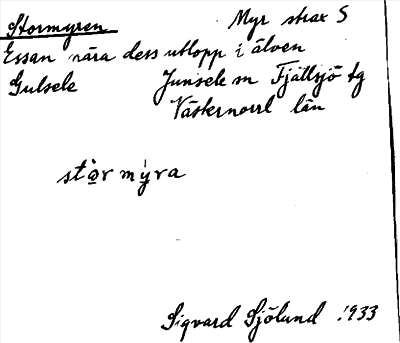 Stormyren Myr strax S
Essan nära dess utlopp i älven
Gulsele Junsele sn Fjällsjö tg
Västernorrl län
stò̤r mý̤ra
Sigvard Sjölund 1933